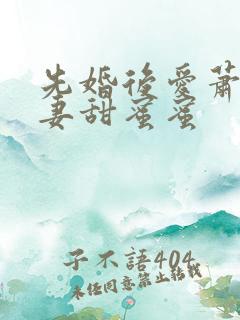 先婚後愛蕭
妻甜蜜蜜
子不語404
未任同意禁止轉載